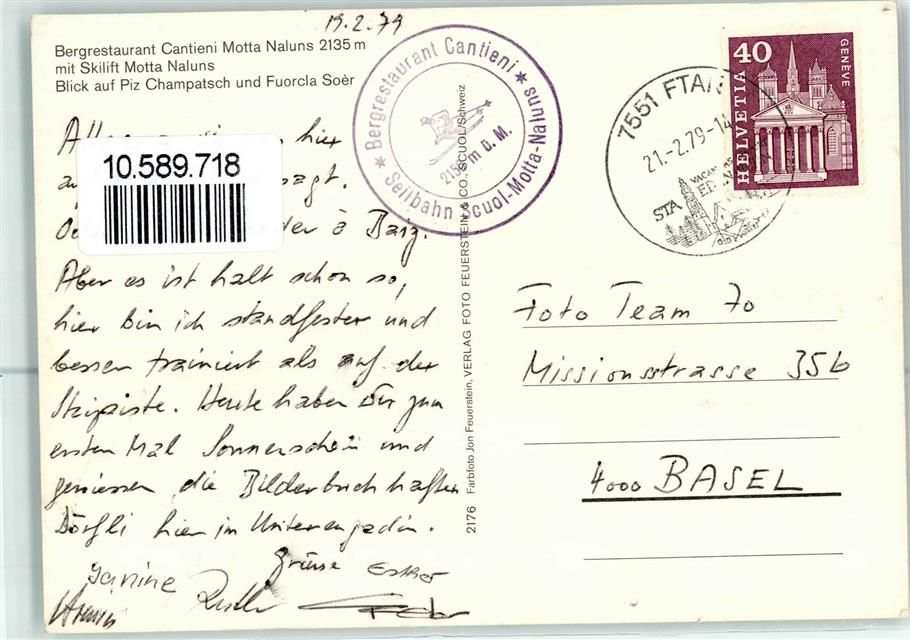 19.2.79
Bergrestaurant Cantieni Motta Naluns 2135 m
mit Skilift Motta Naluns
Blick auf Piz Champatsch und Fuorcla Soèr
* Bergrestaurant Cantieni *
m ü. M.
Seilbahn Scuol-Motta-Naluns
7551 FTAN
21.-2.79-14
40
HELVETIA
GENÈVE
10.589.718
hier
Aber es ist halt schon so,
hier bin ich standfester und
besser trainiert als auf der
Skipiste. Heute haben wir zum
ersten Mal Sonnenschein und
geniessen die Bilderbuchhaften
Dörfli hier im Unterengadin.
Grüsse Esther
Janine
2176 Farbfoto Jon Feuerstein, VERLAG FOTO FEUERSTEIN & CO., SCUOL/Schweiz
Foto Team 70
Missionsstrasse 35b
4000 BASEL